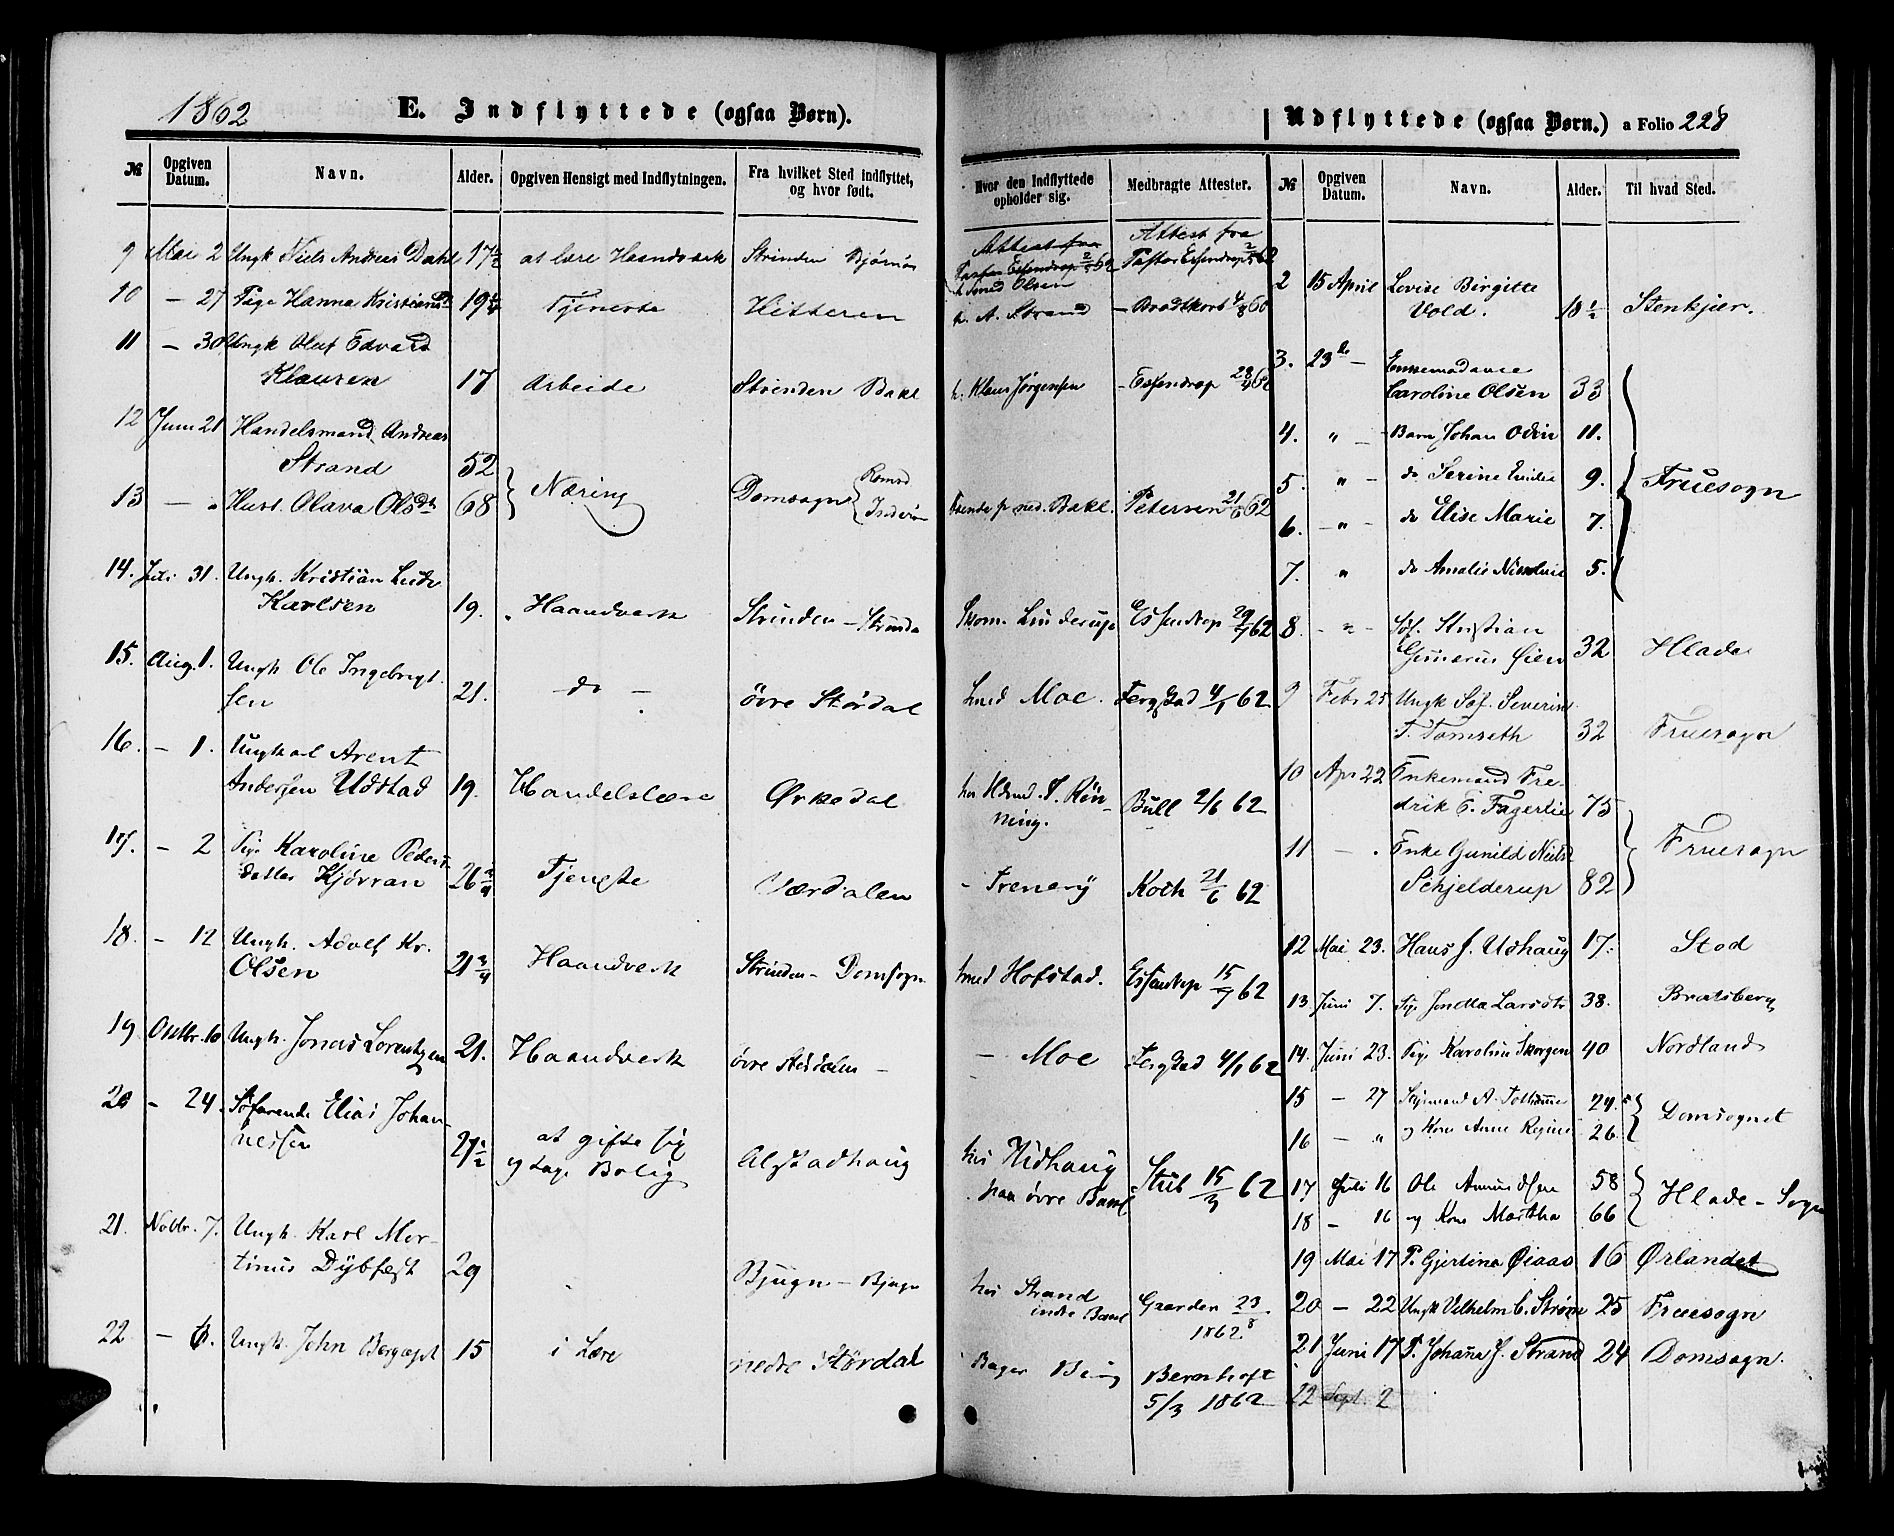 1862
E. Indflyttede (ogsaa Børn).
№ Opgiven Datum. Navn. Alder. Opgiven Hensigt med Indflytningen. Fra hvilket Sted indflyttet, og hvor født.
9 Mai 2 Ungk Niels Andreas Dahl 17½ at lære Haandværk Strinden
10 — 27 Pige Hanna Kristiansd 19¼ Tjeneste Hitteren
11 — 30 Ungk Oluf Edvard
Klausen 17 Arbeide Strinden Bakl
12 Juni 21 Handelsmand Andreas
Strand 52
13 — „ Hust. Olava Olsdtr 68 Næring Domsogn
14. Juli 31. Ungk. Kristian
Karlsen 19. Haandværk Strinden – Strinda
15. Aug. 1. Ungk Ole Ingebrigt
sen 21. do — øvre Størdal
16. — 1. Ungkarl Arent
Andersen Udstad 19. Handelslære Ørkedal
17. — 2 Pige Karoline Peders
datter Kjøvran 26¾ Tjeneste Værdalen
18. — 12 Ungk. Adolf Kr.
Olsen 21¾ Haandverk Strinden – Domsogn
19 Oktbr. 10 Ungk. Jonas Lorentzen 21. Haandverk øvre Størdalen –
20 — 24. Søfarende Elias Johan-
nessen 27½ at gifte sig
og tage Bolig Alstadhaug
21. Novbr. 7. Ungk. Karl Mor-
tinus Dybfest 29 Bjugn – Bjugn
22 — 8. Ungk. John 15 i Lære nedre Størdal
Udflyttede (ogsaa Børn.) a Folio 228
Hvor den Indflyttede opholder sig. Medbragte Attester. № Opgiven Datum. Navn. Alder. Til hvad Sted.
Attest fra
Pastor Essendrop 2/5 62
h. Smed Olsen
Attest fra
Pastor Essendrop 2/5 62
h. A. Strand – Brodtkorb 4/8 60
h. Klaus Jørgensen – Essendrop 28/4 62
ned. Bakl. Petersen 21/6 62
Skom. Linderup Essendrop 29/7 62
Smed Moe. Fergstad 4/1 62
hos Hdmd. J. Røn-
ning. Bull 2/6 62
– Koch 21/6 62
Smed Hofstad. Essendrop 15/7 62
– Moe Fergstad 4/1 62
hos Udhaug
paa øvre Bakl. Stub 15/9 62
hos Strand
indre Bakl Gaarden 23/8
1862.
Bager Bernhoft
5/3 1862
2 15 April Lovise Birgitte
Vold. 18½ Stenkjær.
3. 23de – Enkemadame
Caroline Olsen 33
4. „ – Barn Johan Odin 11.
5. „ – do Serine Emilie 9. Fruesogn
6. – „ – do Elise Marie 7.
7. „ do Amalie 5.
8. – „ – Søf. Kristian
Gunerus Øien 32 Hlade
9 Febr 25 Ungk Søf. Severin
T. Tomseth 32 Fruesogn
10 Apr 22 Enkemand Fre-
drik T. Fagerlie 75
11 — . Enke Gunild Nielsd
Schjelderup 82 Fruesogn
12 Mai 23. Hans J. Udhaug 17. Stod
13 Juni 7. Pige Larsdtr 38. Bratsberg
14. Juni 23. Pige Karoline Skorgen 40 Nordland
15 — 27 A. 24.
16 — „ og Kone Anne Regine 26. Domsognet
17 Juli 16 Ole Amundsen 58
18 – 16 og Kone Martha 66 Hlade – Sogn
19 Mai 17 P. Gjertina Øiaas 16 Ørlandet
20 — 22 Ungk Vilhelm C. Strøm 25 Fruesogn
21 Juni 17 P. Johana J. Strand 24 Domsogn.
22 Sept. 2